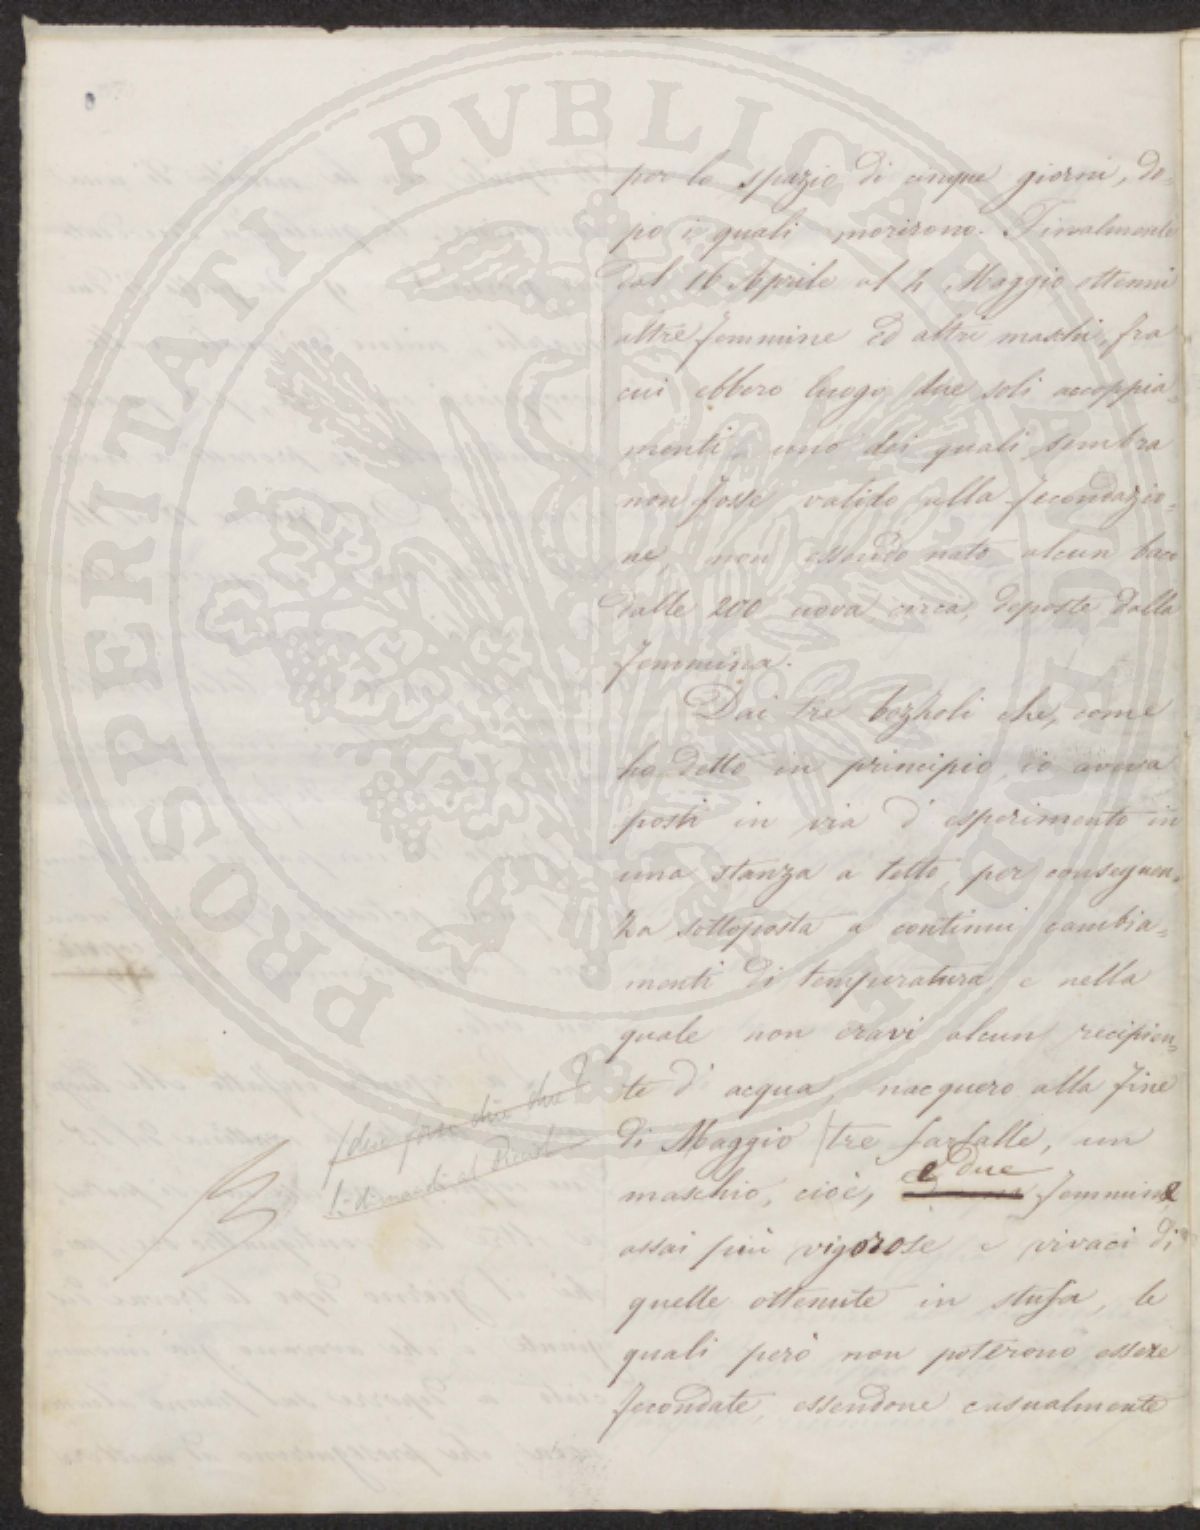 PROSPERITATI PVBLICAE AVGENDAE
per lo spazio di cinque giorni, do-
po i quali morirono. Finalmente
dal 16 Aprile al 4 Maggio ottenni
altre femmine ed altri maschi, fra
cui ebbero luogo due soli accoppia-
menti uno dei quali sembra
non fosse valido alla fecondazio-
ne, non essendo nato alcun baco
dalle 200 uova circa, deposte dalla
femmina.
Dai tre bozzoli che, come
ho detto in principio, io aveva
posti in via d'esperimento in
una stanza a tetto, per conseguen-
za sottoposta a continui cambia-
menti di temperatura e nella
quale non eravi alcun recipien-
te d'acqua, nacquero alla fine
di Maggio tre farfalle, un
maschio, cioè, e due femmine
assai più vigorose e vivaci di
quelle ottenute in stufa, le
quali però non poterono essere
fecondate, essendone casualmente
(deve forse dire due?
Si dimandi al